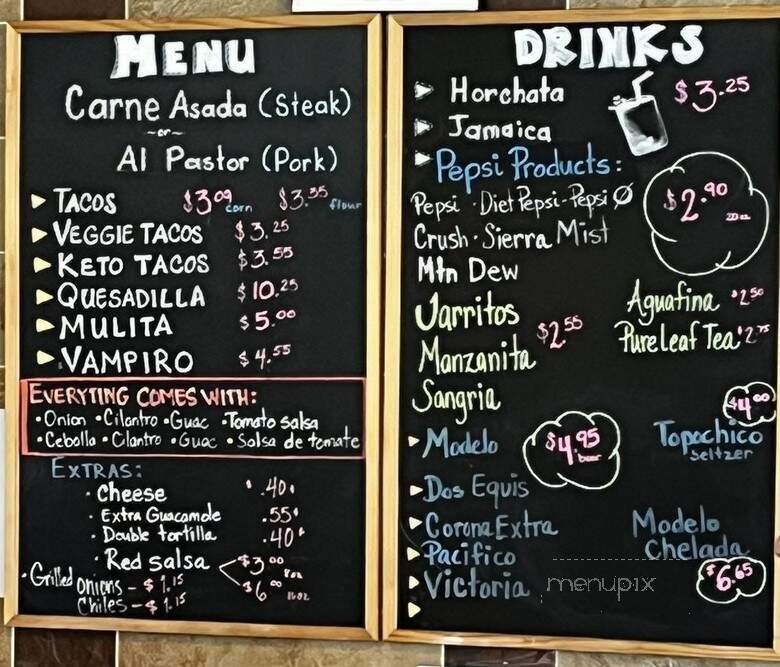 MENU
Carne Asada (Steak)
-or-
Al Pastor (Pork)
TACOS $3.09 corn $3.35 flour
VEGGIE TACOS $3.25
KETO TACOS $3.55
QUESADILLA $10.25
MULITA $5.00
VAMPIRO $4.55
EVERYTING COMES WITH:
• Onion • Cilantro • Guac • Tomato salsa
• Cebolla • Cilantro • Guac • Salsa de tomate
EXTRAS:
• Cheese .40¢
• Extra Guacamole .55¢
• Double tortilla .40¢
• Red salsa $3.00 8oz
$6.00 16oz
• Grilled onions - $1.15
Chiles - $1.15
DRINKS
Horchata $3.25
Jamaica
Pepsi Products:
Pepsi • Diet Pepsi - Pepsi Ø $2.90 20oz
Crush • Sierra Mist
Mtn Dew
Jarritos $2.55
Manzanita
Sangria
Aguafina $2.50
Pure Leaf Tea $2.75
Modelo $4.95 beer
Dos Equis
Corona Extra
Pacifico
Victoria
$4.00
Topochico
seltzer
Modelo
Chelada
$6.65
menupix